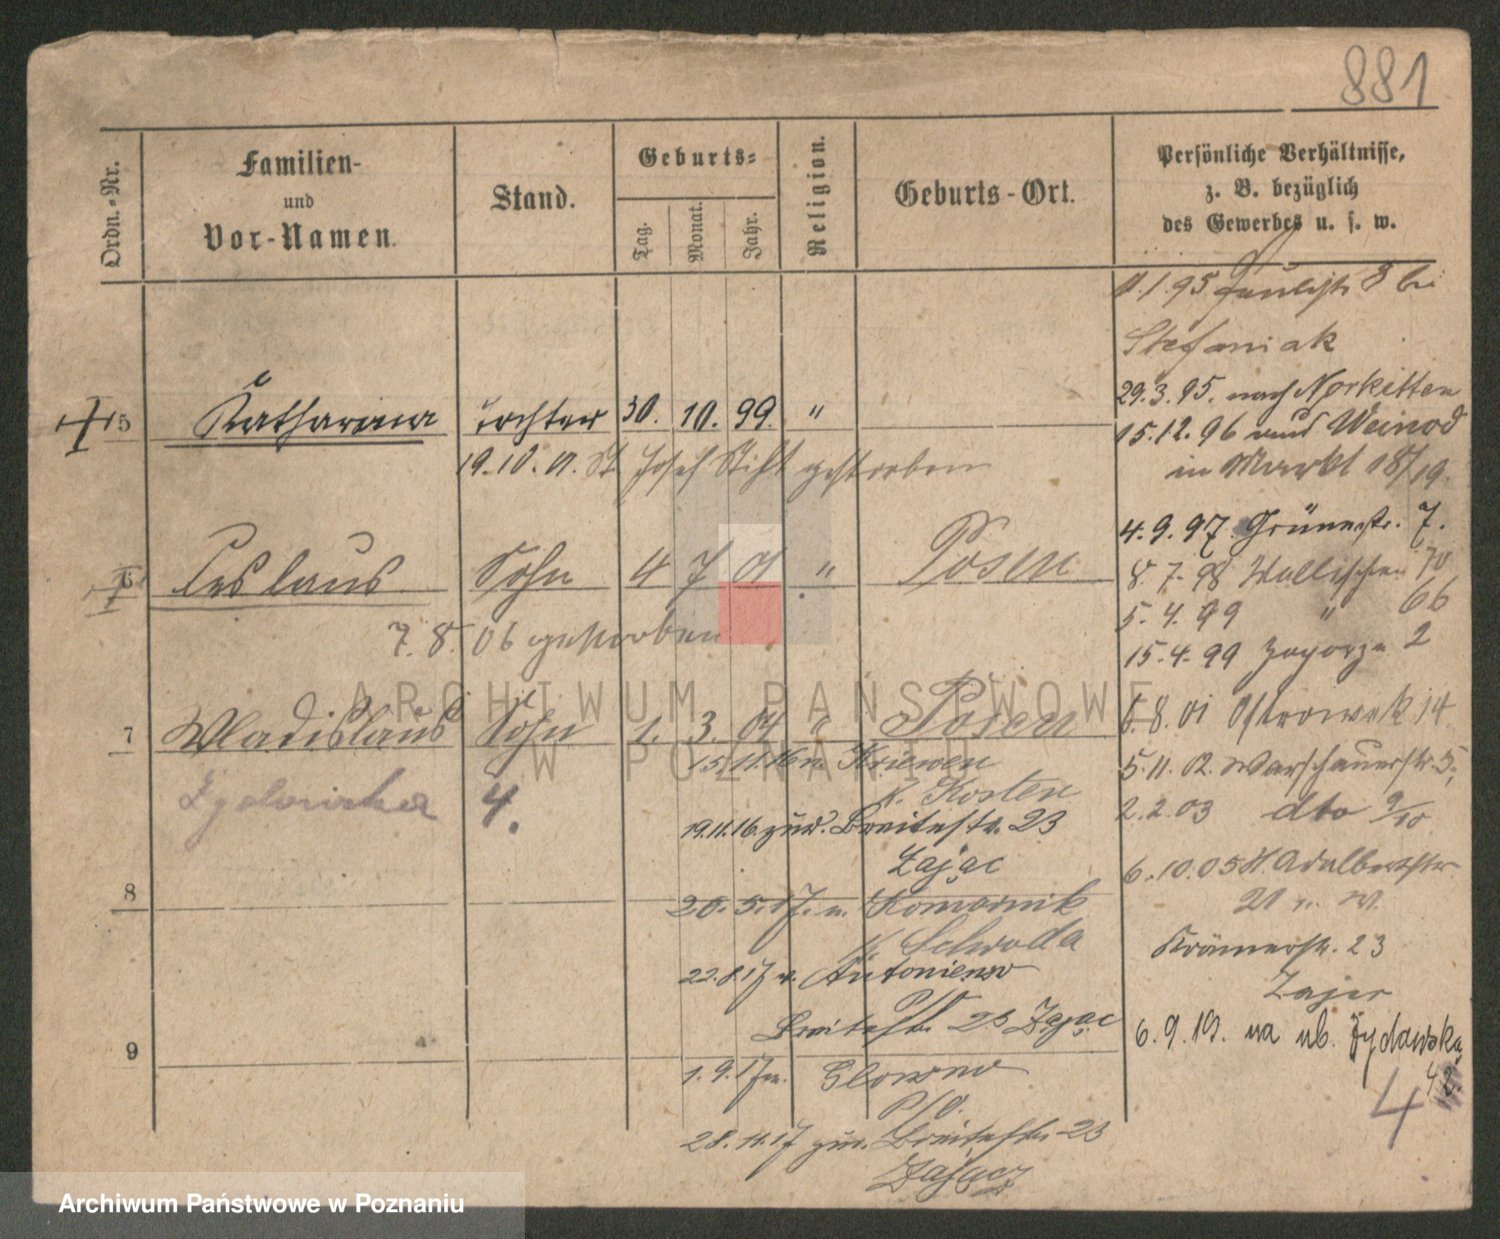 881
Ordn.-Nr.
Familien-
und
Vor-Namen.
Stand.
Geburts-
Tag.
Monat.
Jahr.
Religion.
Geburts-Ort.
Persönliche Verhältnisse,
z. B. bezüglich
des Gewerbes u. s. w.
1.95 Paulistr 8 bei
Stefaniak
29.3.95. nach Norkitten
5 Katharina Tochter 30. 10. 99. "
15.12.96 Weinod
19.10.01. St Josef Stift gestorben
in Markt 18/19.
4.9.97. Grünestr. 7.
6 Ceslaus Sohn 4 7 01 " Posen
8.7.98 Wallischei 70
5.4.99 " 66
7.8.06 gestorben
15.4.99 Zagorze 2
7 Wladislaus Sohn 1. 3. 04 " Posen
8.01 Ostrowek 14
15.11.16 n. Kriewen
5.11.02. Warschauerstr. 5
k. Kosten
Zydowska 4.
2.2.03 dto 9/10
19.11.16. zur. Breitestr. 23
Zająć
6.10.05 St. Adalbertstr.
8
20.5.17. n. Komornik
21
K. Schroda
Krämerstr. 23
22.8.17 n. Antoniewo
Zajac
P/O
Breitestr. 23 Zając
6.9.19. na ul. Żydowską
4
9
1.9.17 n. Glowno
P/O.
28.11.17 zur. Breitestr. 23
Zającz
ARCHIWUM PAŃSTWOWE
W POZNANIU
Archiwum Państwowe w Poznaniu